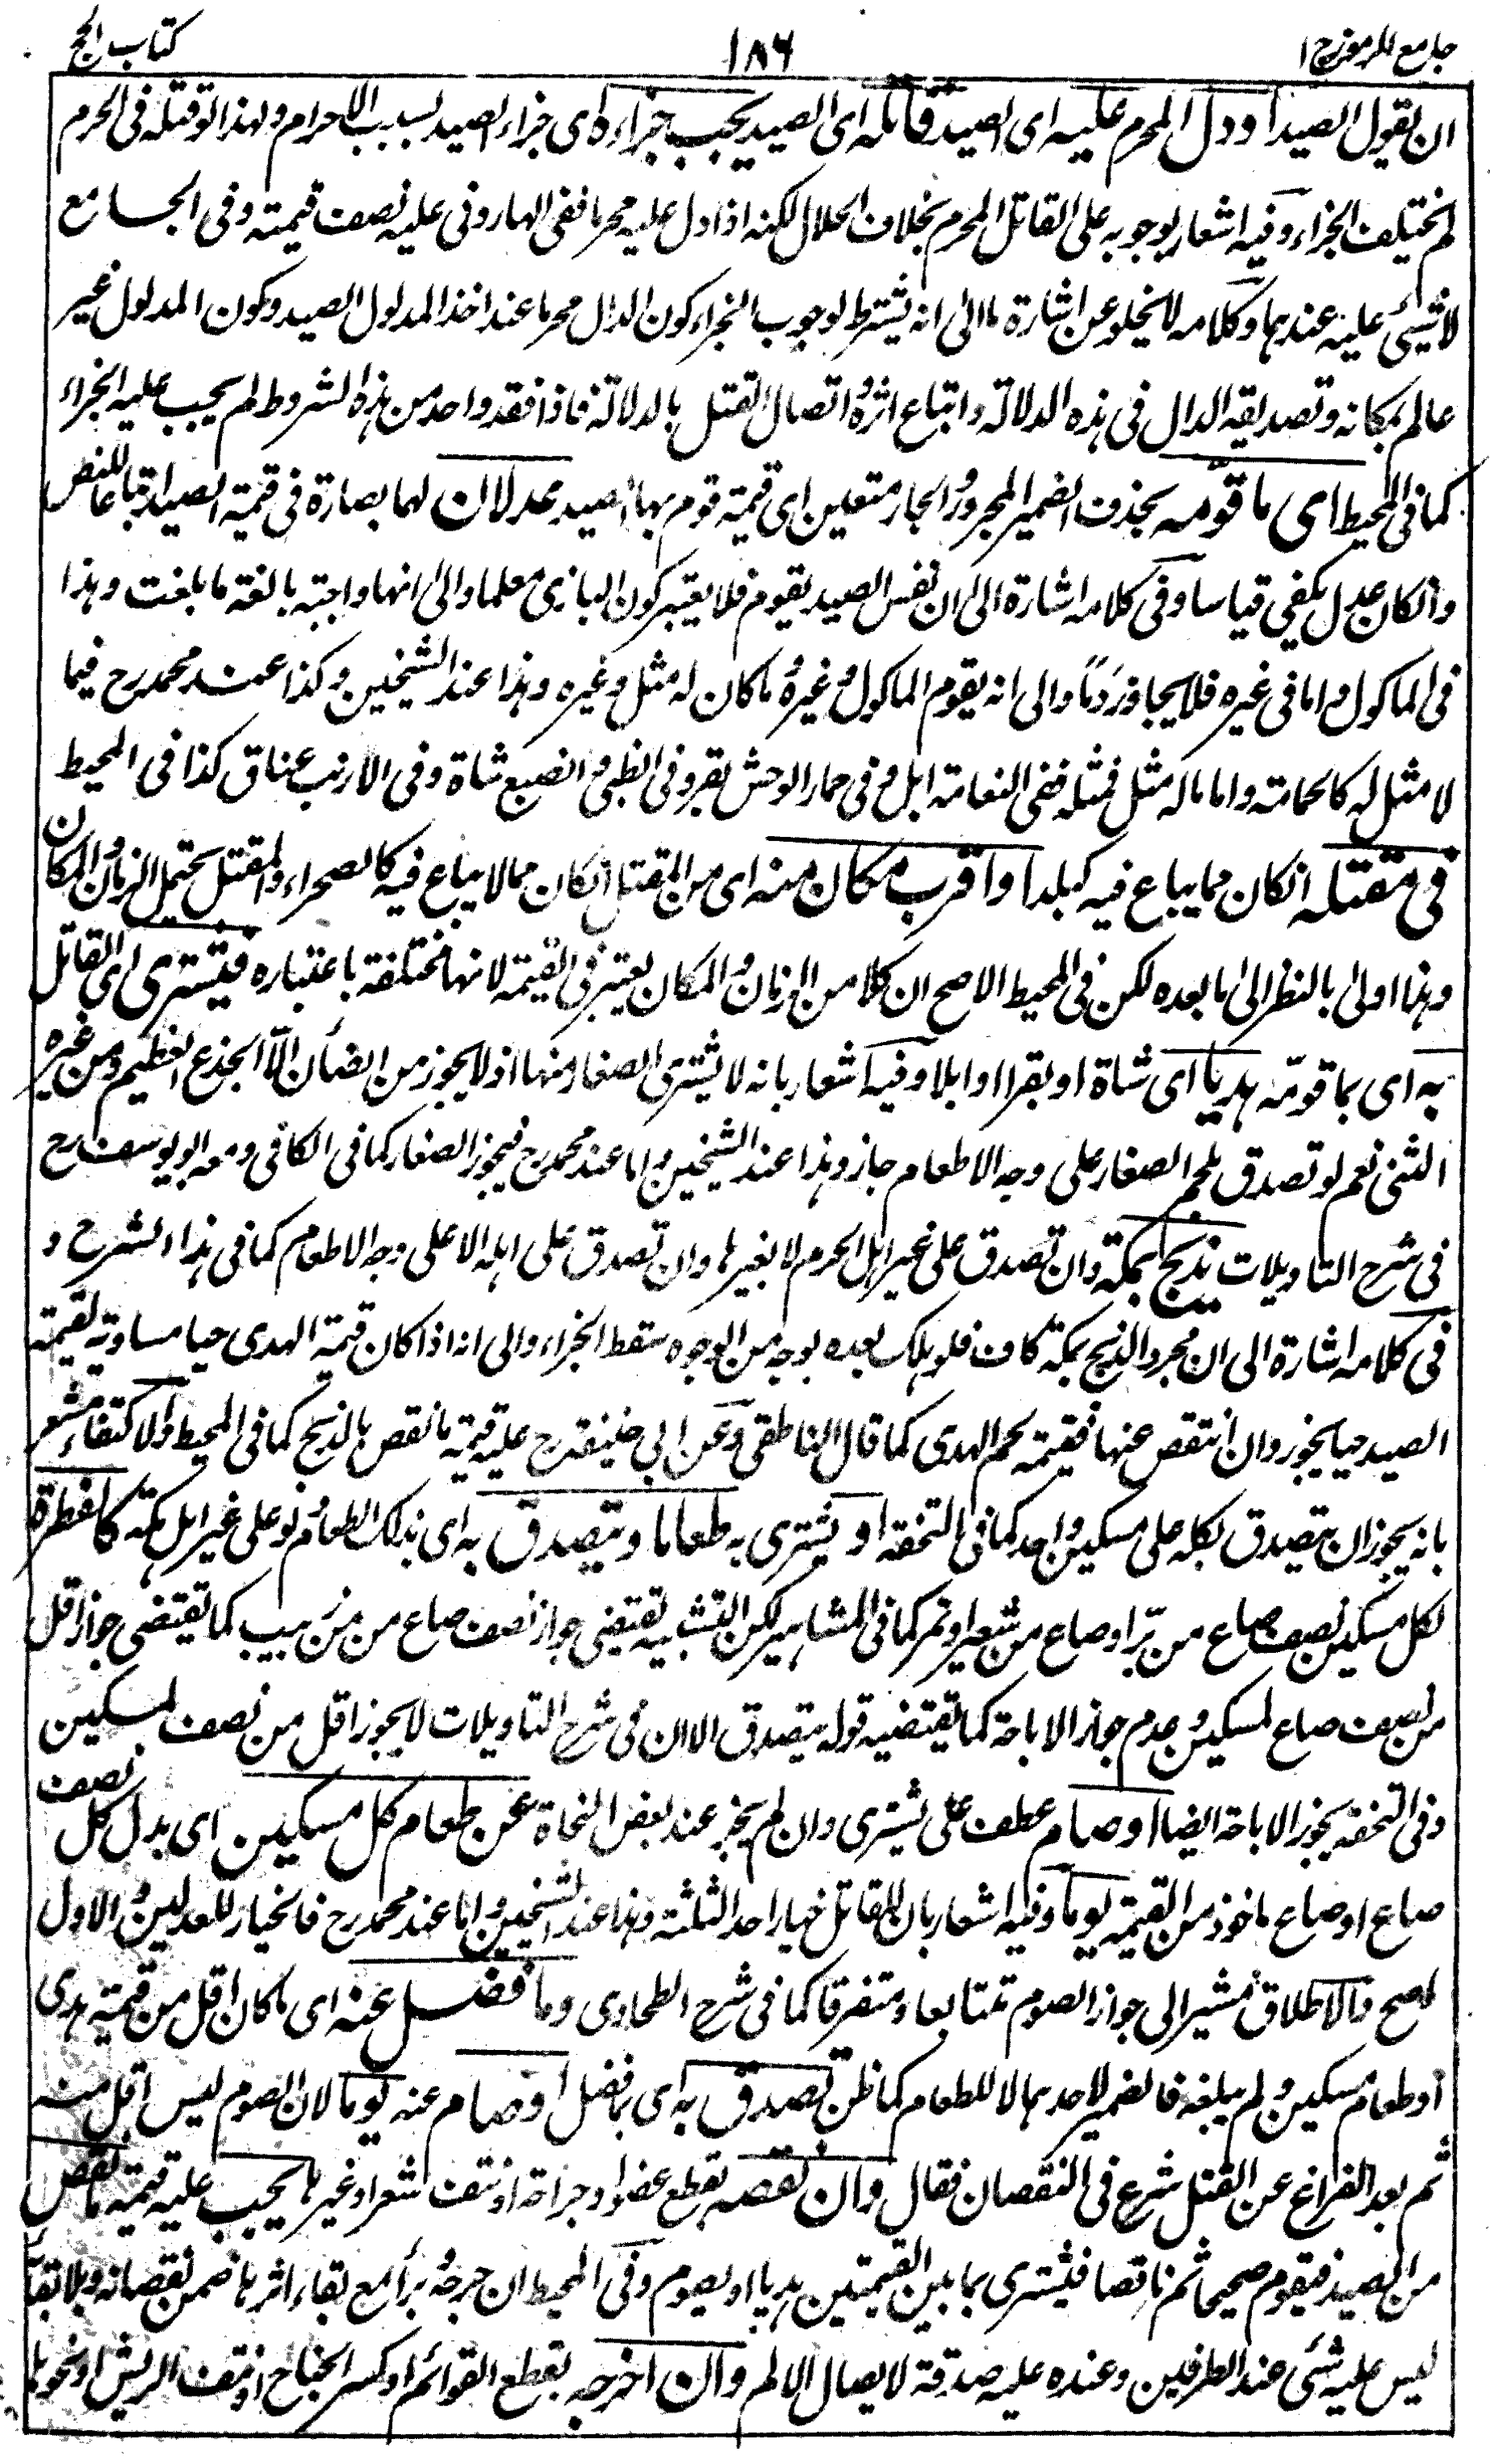 جامع الرموز ج ١
١٨٦
كتاب الحج
ان يقول الصيد او دل المحرم عليه اى الصيد قاتله اى الصيد يجب جزاءه اى جزاء الصيد بسبب الاحرام ولهذا لو قتله فى الحرم
لم يختلف الجزاء وفيه اشعار بوجوبه على القاتل المحرم بخلاف الحلال لكنه اذا دل عليه محرما ففى الهارونى عليه نصف قيمته وفى الجامع
لا شيئ عليه عندهما وكلامه لا يخلو عن اشارة ما الى انه يشترط لوجوب الجزاء كون الدال محرما عند اخذ المدلول الصيد وكون المدلول غير
عالم بمكانه وتصديقه الدال فى هذه الدلالة واتباع اثره واتصال القتل بالدلالة فاذا فقد واحد من هذه الشروط لم يجب عليه الجزاء
كما فى المحيط اى ما قوّمه بحذف الضمير المجرور والجار متعين اى قيمة قوم بها الصيد عدلان لهما بصارة فى قيمة الصيد اتباعا للنص
وان كان عدل يكفى قياسا وفى كلامه اشارة الى ان نفس الصيد يقوم فلا يعتبر كون البازى معلما والى انها واجبة بالغة ما بلغت وهذا
فى الماكول واما فى غيره فلا يجاوز دَمًا والى انه يقوم الماكول وغيره ما كان له مثل وغيره وهذا عند الشيخين وكذا عند محمد رح فيما
لا مثل له كالحمامة واما ما له مثل فمثله ففى النعامة ابل وفى حمار الوحش بقر وفى الظبى والضبع شاة وفى الارنب عناق كذا فى المحيط
فى مقتله ان كان مما يباع فيه كبلد او اقرب مكان منه اى من المقتل ان كان مما لا يباع فيه كالصحراء والمقتل يحتمل الزمان والمكان
وهذا اولى بالنظر الى ما بعده لكن فى المحيط الاصح ان كلا من الزمان والمكان يعتبر فى القيمة لانها مختلفة باعتباره فيشترى اى القاتل
به اى بما قوّمه هديا اى شاة او بقرا او ابلا وفيه اشعار بانه لا يشترى الصغار منها اذ لا يجوز من الضأن الّا الجذع العظيم ومن غيره
الثنى نعم لو تصدق بلحم الصغار على وجه الاطعام جاز وهذا عند الشيخين واما عند محمد رح فيجوز الصغار كما فى الكافى ومعه ابو يوسف رح
فى شرح التاويلات يذبح بمكة وان تصدق على غير اهل الحرم لا بغيرها وان تصدق على اهله الا على وجه الاطعام كما فى هذا الشرح و
فى كلامه اشارة الى ان مجرد الذبح بمكة كاف فلو هلك بعده بوجه من الوجوه سقط الجزاء والى انه اذا كان قيمة الهدى حيا مساوية لقيمة
الصيد حيا يجوز وان انتقص عنها فقيمة لحم الهدى كما قال الناطقى وعن ابى حنيفة رح عليه قيمة ما نقص بالذبح كما فى المحيط والاكتفاء مشعر
بانه يجوز ان يتصدق بكله على مسكين واحد كما فى التحفة او يشترى به طعاما ويتصدق به اى بذلك الطعام ولو على غير اهل مكة كالفطرة
لكل مسكين نصف صاع من برّ او صاع من شعير او تمر كما فى المشاهير لكن التشبيه يقتضى جواز نصف صاع من زبيب كما يقتضى جواز اقل
من نصف صاع لمسكين وعدم جواز الاباحة كما يقتضيه قوله يتصدق الا ان فى شرح التاويلات لا يجوز اقل من نصف لمسكين
وفى التحفة يجوز الاباحة ايضا او صام عطف على يشترى وان لم يجز عند بعض النحاة عن طعام كل مسكين اى بدل كل نصف
صاع او صاع ماخوذ من القيمة يوما وفيه اشعار بان للقاتل خيار احد الثلثة وهذا عند الشيخين واما عند محمد رح فالخيار للعدلين والاول
اصح والاطلاق مشير الى جواز الصوم متتابعا ومتفرقا كما فى شرح الطحاوى وما فضل عنه اى ما كان اقل من قيمة هدى
او طعام مسكين ولم يبلغه فالضمير لاحدهما لا للطعام كما ظن تصدق به اى بما فضل او صام عنه يوما لان الصوم ليس اقل منه
ثم بعد الفراغ عن القتل شرع فى النقصان فقال وان نقصه بقطع عضو او جراحة او نتف شعر او غيرها يجب عليه قيمة ما نقص
من الصيد فيقوم صحيحا ثم ناقصا فيشترى بما بين القيمتين هديا او يصوم وفى المحيط ان جرحه وبرأ مع بقاء اثرها ضمن نقصانه وبلا بقاء
ليس عليه شئ عند الطرفين وعنده عليه صدقة لايصال الالم وان اخرجه بقطع القوائم او كسر الجناح او نتف الريش او نحوها